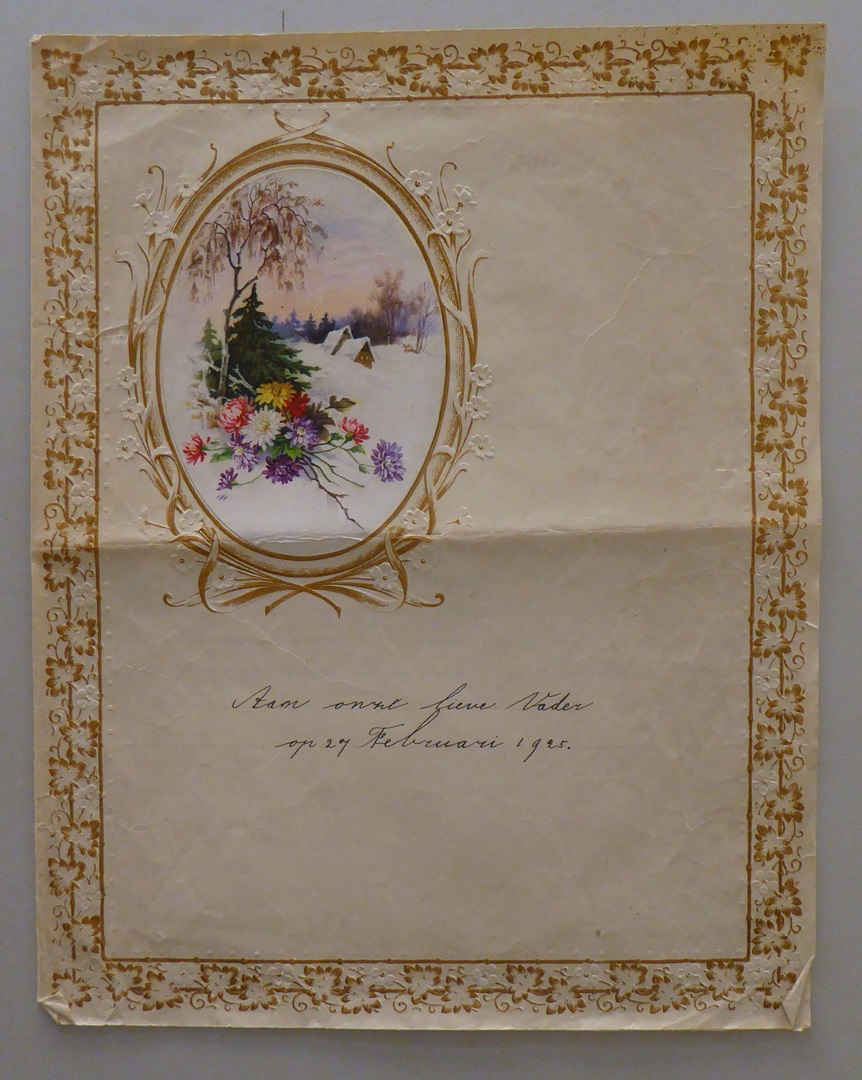 Aan onze lieve Vader
op 27 Februari 1925.